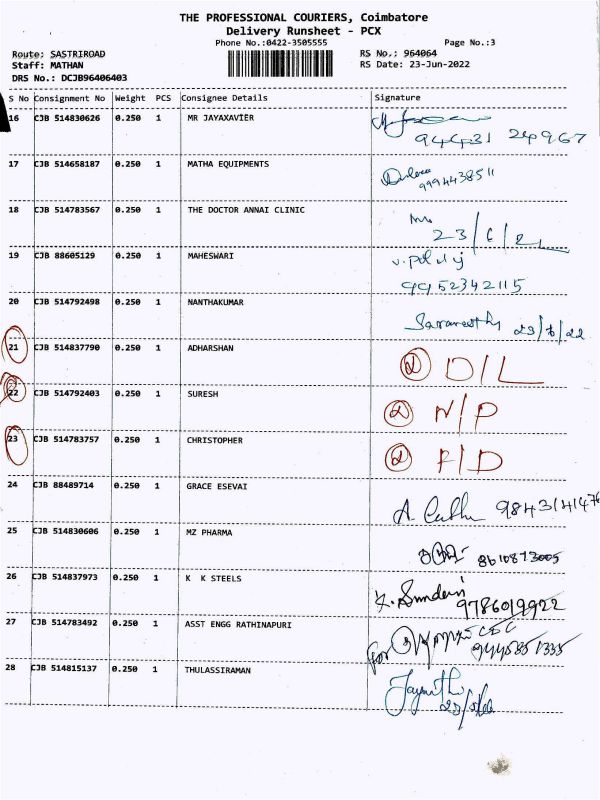 THE PROFESSIONAL COURIERS, Coimbatore
Delivery Runsheet - PCX
Phone No.:0422-3505555 Page No.:3
Route: SASTRIROAD RS No.: 964064
Staff: MATHAN RS Date: 23-Jun-2022
DRS No.: DCJB96406403
S No Consignment No Weight PCS Consignee Details Signature
16 CJB 514830626 0.250 1 MR JAYAXAVIER
94431 24967
17 CJB 514658187 0.250 1 MATHA EQUIPMENTS
9994438511
18 CJB 514783567 0.250 1 THE DOCTOR ANNAI CLINIC
19 CJB 88605129 0.250 1 MAHESWARI
9952342115
20 CJB 514792498 0.250 1 NANTHAKUMAR 23/6/22
21 CJB 514837790 0.250 1 ADHARSHAN D/L
22 CJB 514792403 0.250 1 SURESH N/P
23 CJB 514783757 0.250 1 CHRISTOPHER F/D
24 CJB 88489714 0.250 1 GRACE ESEVAI
25 CJB 514830606 0.250 1 MZ PHARMA 8610873005
26 CJB 514837973 0.250 1 K K STEELS K. Sundari
9786019922
27 CJB 514783492 0.250 1 ASST ENGG RATHINAPURI for
28 CJB 514815137 0.250 1 THULASSIRAMAN